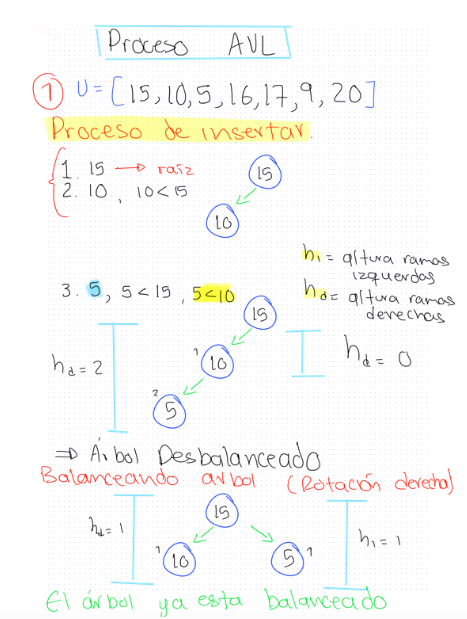 Proceso AVL
1 U = [15, 10, 5, 16, 17, 9, 20]
Proceso de insertar.
1. 15 → raíz
2. 10 , 10 < 15
15
10
hi = altura ramas izquierdas
hd = altura ramas derechas
3. 5, 5 < 15 , 5 < 10
15
hd = 2
1 10
hd = 0
2 5
⇒ Árbol Desbalanceado
Balanceando arbol (Rotación derecha)
15
hd = 1
1 10
5 1
hi = 1
El árbol ya esta balanceado